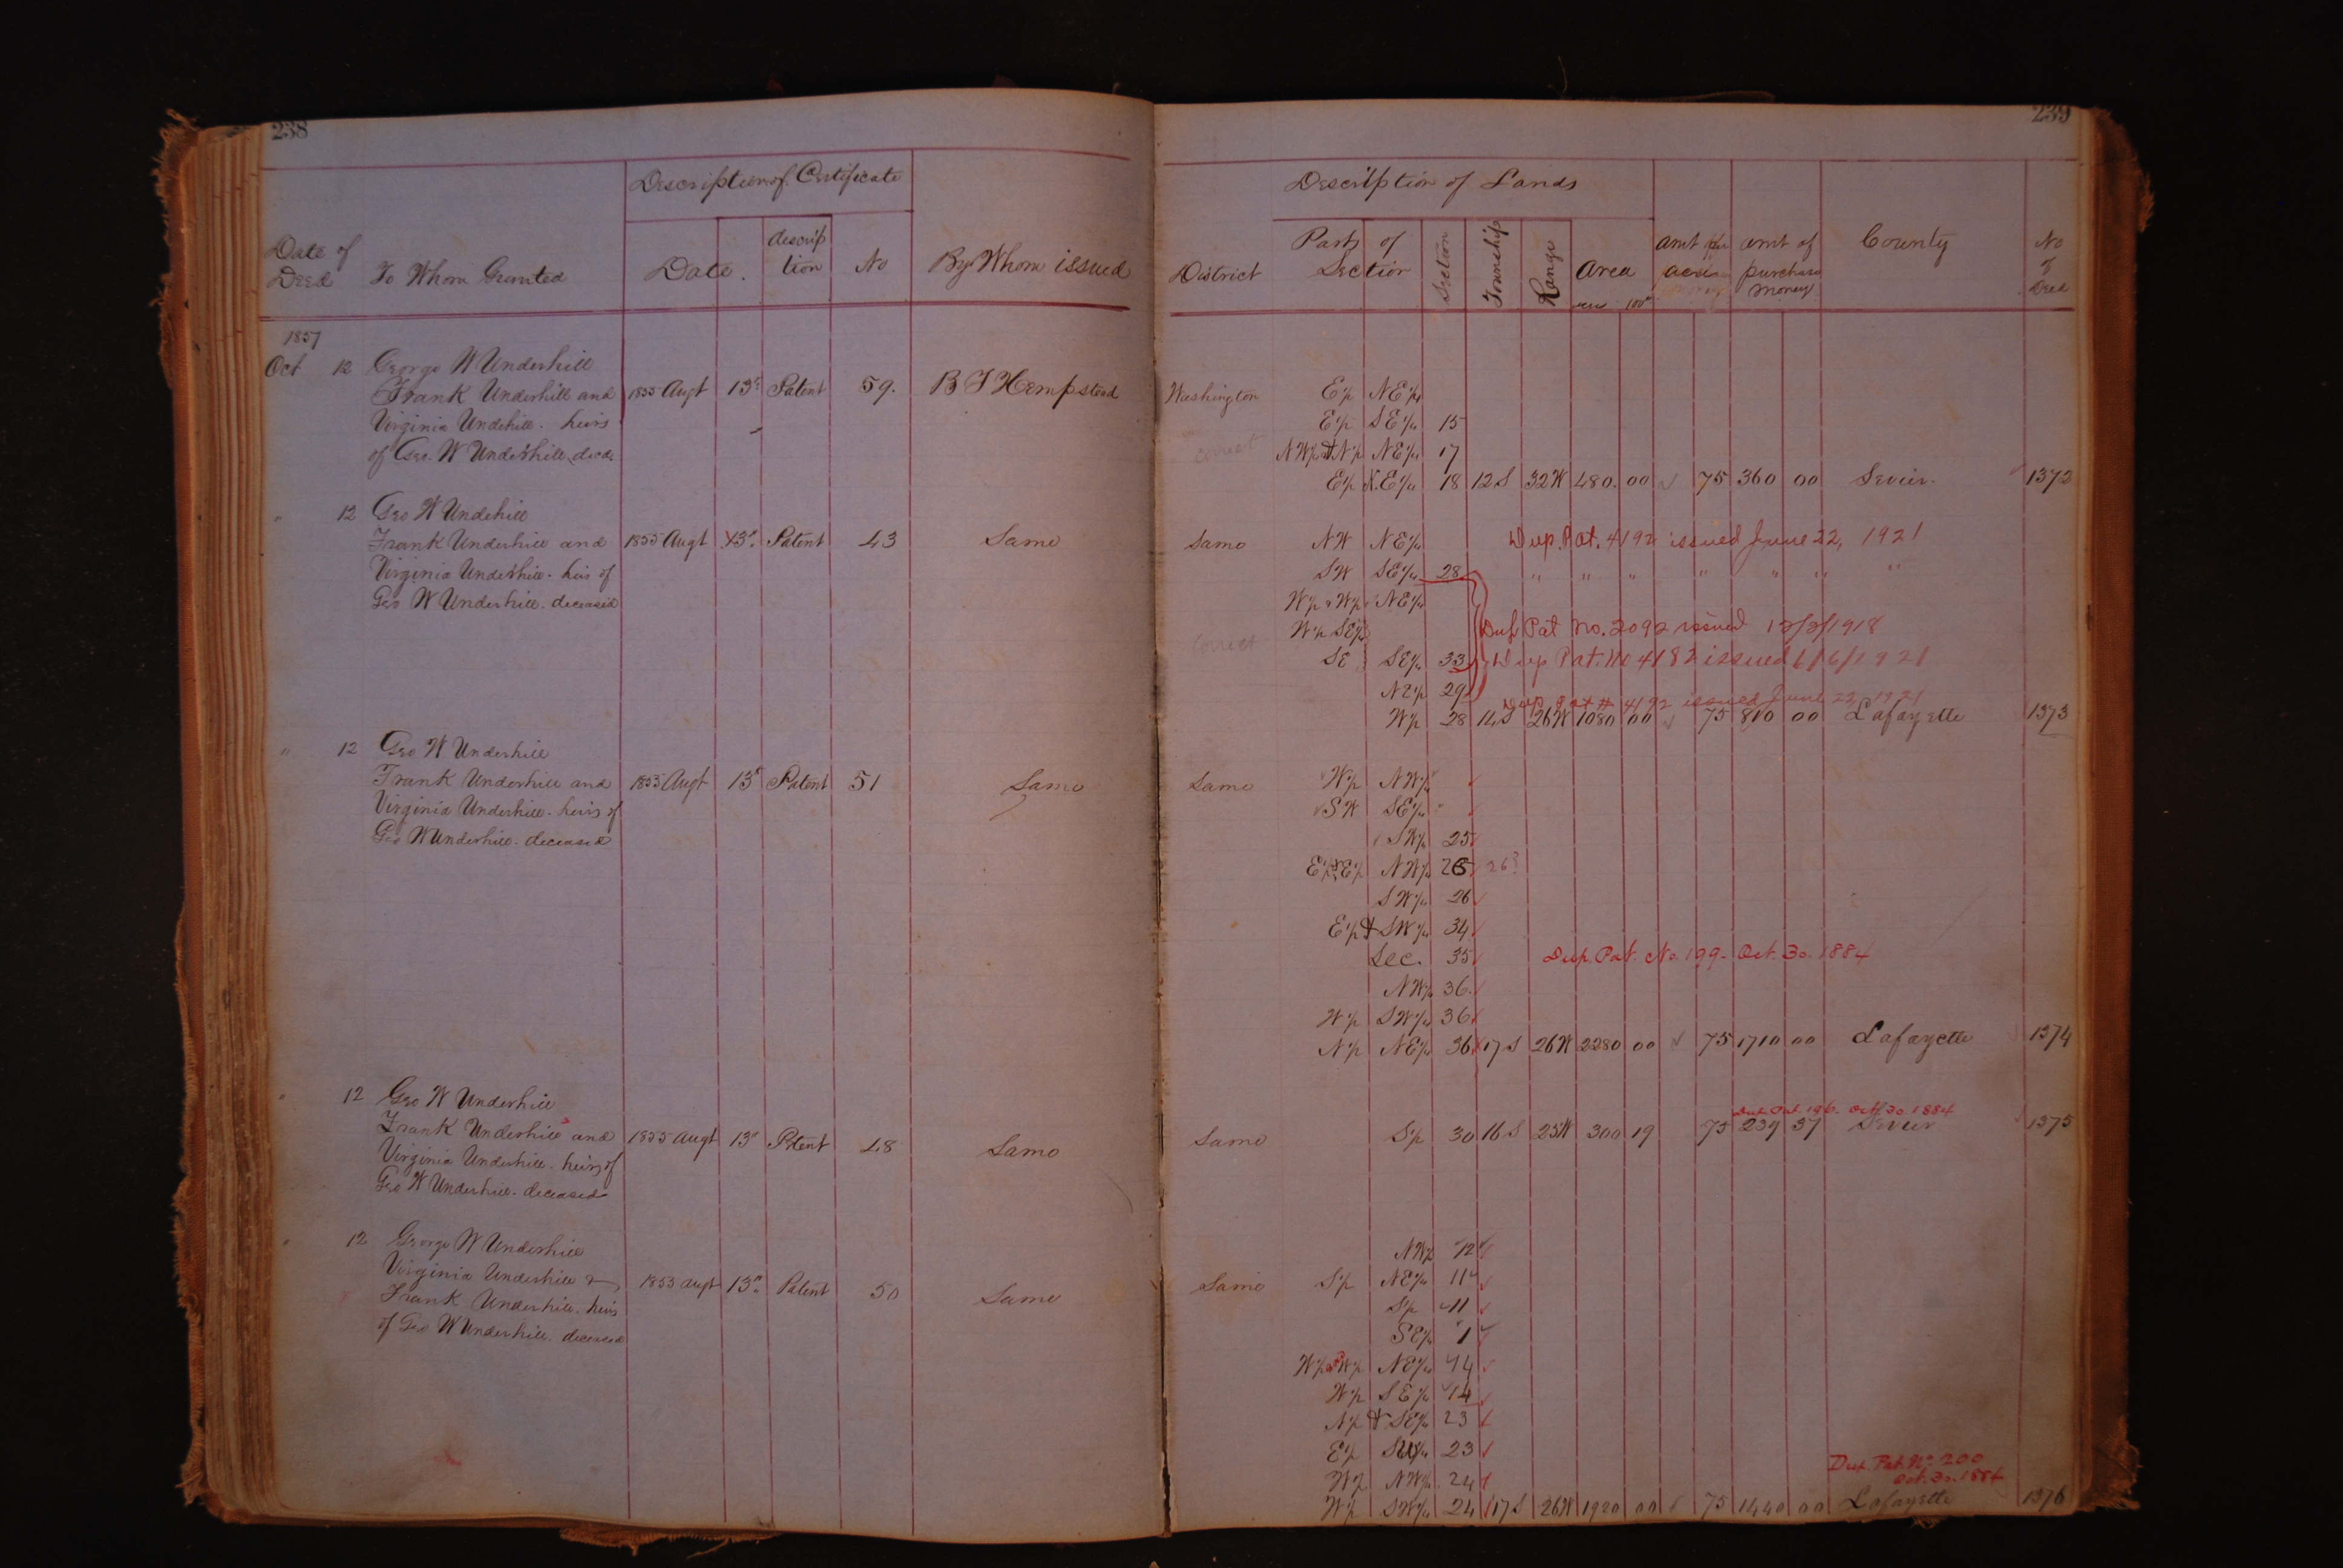 238
Description of Certificate
Date of
Deed
To Whom Granted
Date.
descrip
tion
No
By Whom issued
1857
Oct 12 George W Underhill
Frank Underhill and 1855 Augt 13" Patent 59. B F Hempstead
Virginia Undehill. heirs
of Geo. W Underhill, decd.
" 12 Geo W Undehill
Frank Underhill and 1855 Augt 13". Patent 43 Same
Virginia Underhill. heirs of
Geo W Underhill. deceased
" 12 Geo W Underhill
Frank Underhill and 1855 Augt 13" Patent 51 Same
Virginia Underhill. heirs of
Geo W Underhill. deceased
" 12 Geo W Underhill
Frank Underhill and 1855 Augt 13" Patent 48 Same
Virginia Underhill. heirs of
Geo W Underhill. deceased
" 12 George W Underhill
Virginia Underhill & 1855 Augt 13" Patent 50 Same
Frank Underhill. heirs
of Geo W Underhill. deceased
239
Description of Lands
District
Parts of
Section
Section
Township
Range
Area
acres 100s
amt per
acre
amt of
purchase
money
County
No
of
Deed
Washington E½ NE¼
E½ SE¼ 15
correct NW¼ & N½ NE¼ 17
E½ N.E¼ 18 12S 32W 480.00 75 360 00 Sevier. 1372
Same NW NE¼ Dup. Pat. 4192 issued June 22, 1921
SW SE¼ 28 " " " " " " "
W½ & W½ NE¼
W½ SE¼ Dup Pat No. 2092 issued 12/2/1918
correct
SE SE¼ 33 Dup Pat. No 4182 issued 6/6/1921
NE¼ 29
Dup Pat # 4192 issued June 22, 1921
W½ 28 14S 26W 1080 00 75 810 00 Lafayette 1373
Same W½ NW¼
SW SE¼
SW¼ 25
E½ & E½ NW¼ 26 26?
SW¼ 26
E½ & SW¼ 34
Sec. 35 Dup. Pat. No. 199. Oct. 30. 1884
NW¼ 36.
W½ SW¼ 36
N½ NE¼ 36 17S 26W 2280 00 75 1710 00 Lafayette 1374
Dup. Pat. 196. Oct. 30. 1884
Same S½ 30 16S 25W 300 19 75 239 37 Sevier 1375
NW¼ 12
Same S½ NE¼ 11
S½ 11
SE¼ 1
W½ & W½ NE¼ 14
W½ SE¼ 14
N½ & SE¼ 23
E½ SW¼ 23
W½ NW¼ 24
Dup. Pat. No. 200
Oct. 30. 1884
W½ SW¼ 24 17S 26W 1920 00 75 1440 00 Lafayette 1376